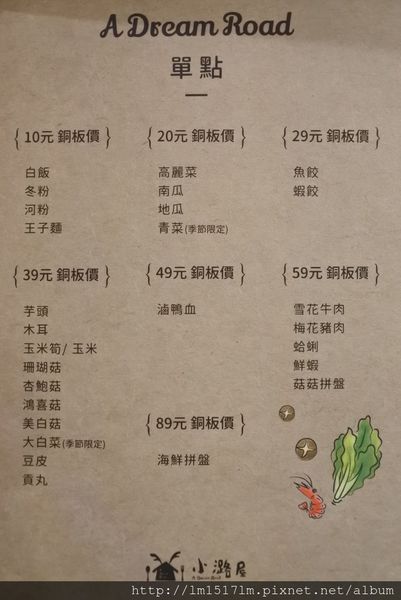 A Dream Road
單點
{ 10元 銅板價 }
白飯
冬粉
河粉
王子麵
{ 20元 銅板價 }
高麗菜
南瓜
地瓜
青菜(季節限定)
{ 29元 銅板價 }
魚餃
蝦餃
{ 39元 銅板價 }
芋頭
木耳
玉米筍/ 玉米
珊瑚菇
杏鮑菇
鴻喜菇
美白菇
大白菜(季節限定)
豆皮
貢丸
{ 49元 銅板價 }
滷鴨血
{ 59元 銅板價 }
雪花牛肉
梅花豬肉
蛤蜊
鮮蝦
菇菇拼盤
{ 89元 銅板價 }
海鮮拼盤
小潞屋
A Dream Road
http://lm1517lm.pixnet.net/album